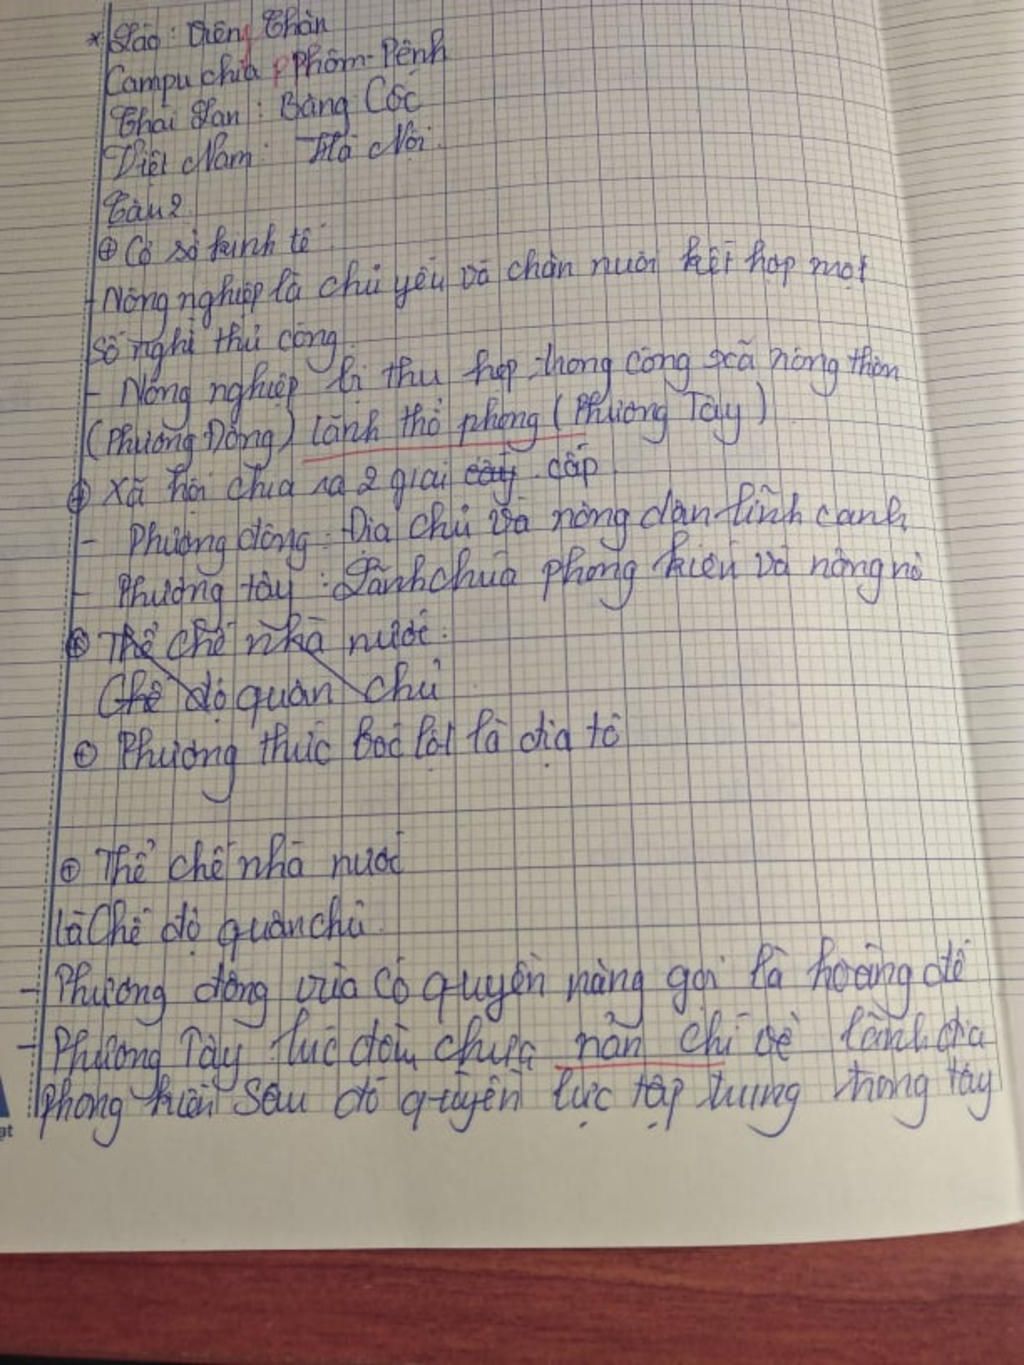 * Lào : Viêng Chăn
Campuchia Phôm-Pênh
Thái Lan : Băng Cốc
Việt Nam : Hà Nội.
Câu 2
⊕ Cơ sở kinh tế :
- Nông nghiệp là chủ yếu và chăn nuôi kết hợp một
số nghề thủ công.
- Nông nghiệp bị thu hẹp trong công xã nông thôn
(Phương Đông) lãnh thổ phong (Phương Tây)
⊕ Xã hội chia ra 2 giai cấp.
- Phương đông : Địa chủ và nông dân lĩnh canh
- Phương tây : Lãnh chúa phong kiến và nông nô
⊕ Thể chế nhà nước :
Chế độ quân chủ
⊕ Phương thức bóc lột là địa tô
⊕ Thể chế nhà nước
là Chế độ quân chủ.
- Phương đông vua có quyền năng gọi là hoàng đế
- Phương Tây lúc đầu chưa nản chí để lãnh địa
phong kiến sau đó quyền lực tập trung trong tay